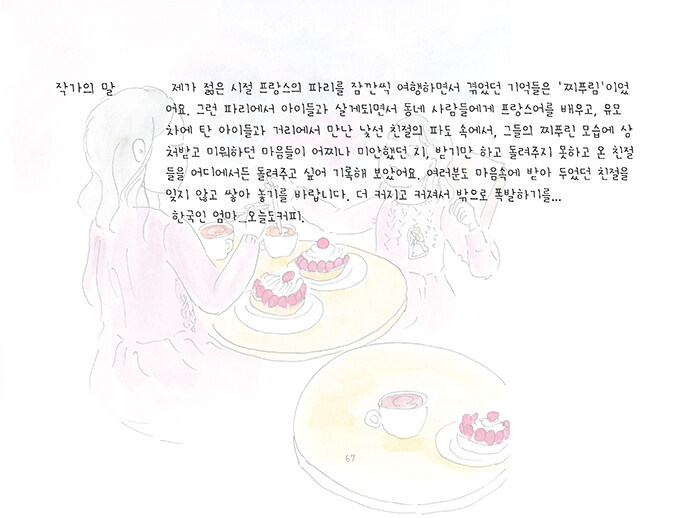 작가의 말 제가 젊은 시절 프랑스의 파리를 잠깐씩 여행하면서 겪었던 기억들은 '찌푸림'이었
어요. 그런 파리에서 아이들과 살게되면서 동네 사람들에게 프랑스어를 배우고, 유모
차에 탄 아이들과 거리에서 만난 낯선 친절의 파도 속에서, 그들의 찌푸린 모습에 상
처받고 미워하던 마음들이 어찌나 미안했던 지, 받기만 하고 돌려주지 못하고 온 친절
들을 어디에서든 돌려주고 싶어 기록해 보았어요. 여러분도 마음속에 받아 두었던 친절을
잊지 않고 쌓아 놓기를 바랍니다. 더 커지고 커져서 밖으로 폭발하기를...
한국인 엄마_오늘도커피.
67